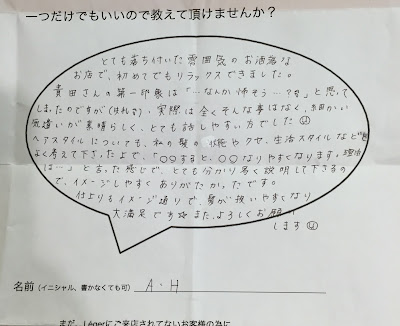 一つだけでもいいので教えて頂けませんか？
とても落ち付いた雰囲気のお洒落な
お店で、初めてでもリラックスできました。
貴田さんの第一印象は「…なんか怖そう…？」と思って
しまったのですが(すいません)、実際は全くそんな事はなく、細かい
気遣いが素晴らしく、とても話しやすい方でした
ヘアスタイルについても、私の髪の状態やクセ、生活スタイルなど
よく考えて下さった上で、「○○すると、○○なりやすくなります。理由
は…」と言った感じで、とても分かり易く説明して下さるの
で、イメージしやすくありがたかったです。
仕上りもイメージ通りで、髪が扱いやすくなり
大満足です☆また、よろしくお願い
します
名前（イニシャル、書かなくても可） A・H
まだ、Légerにご来店されてないお客様の為に